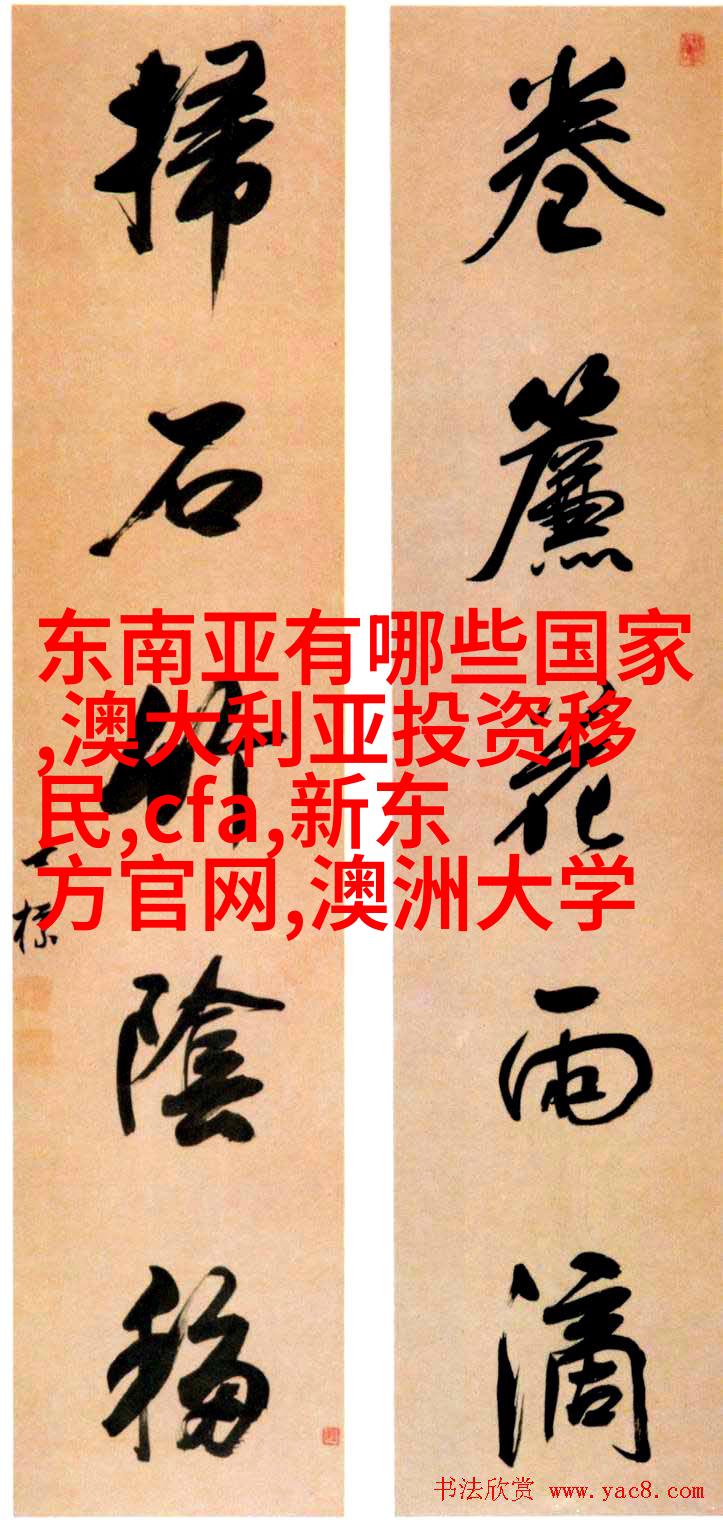 卷簾花雨滴
掃石竹陰移
东南亚有哪些国家
,澳大利亚投资移
民,cfa,新东
方官网,澳洲大学
书法欣赏 www.yac8.com